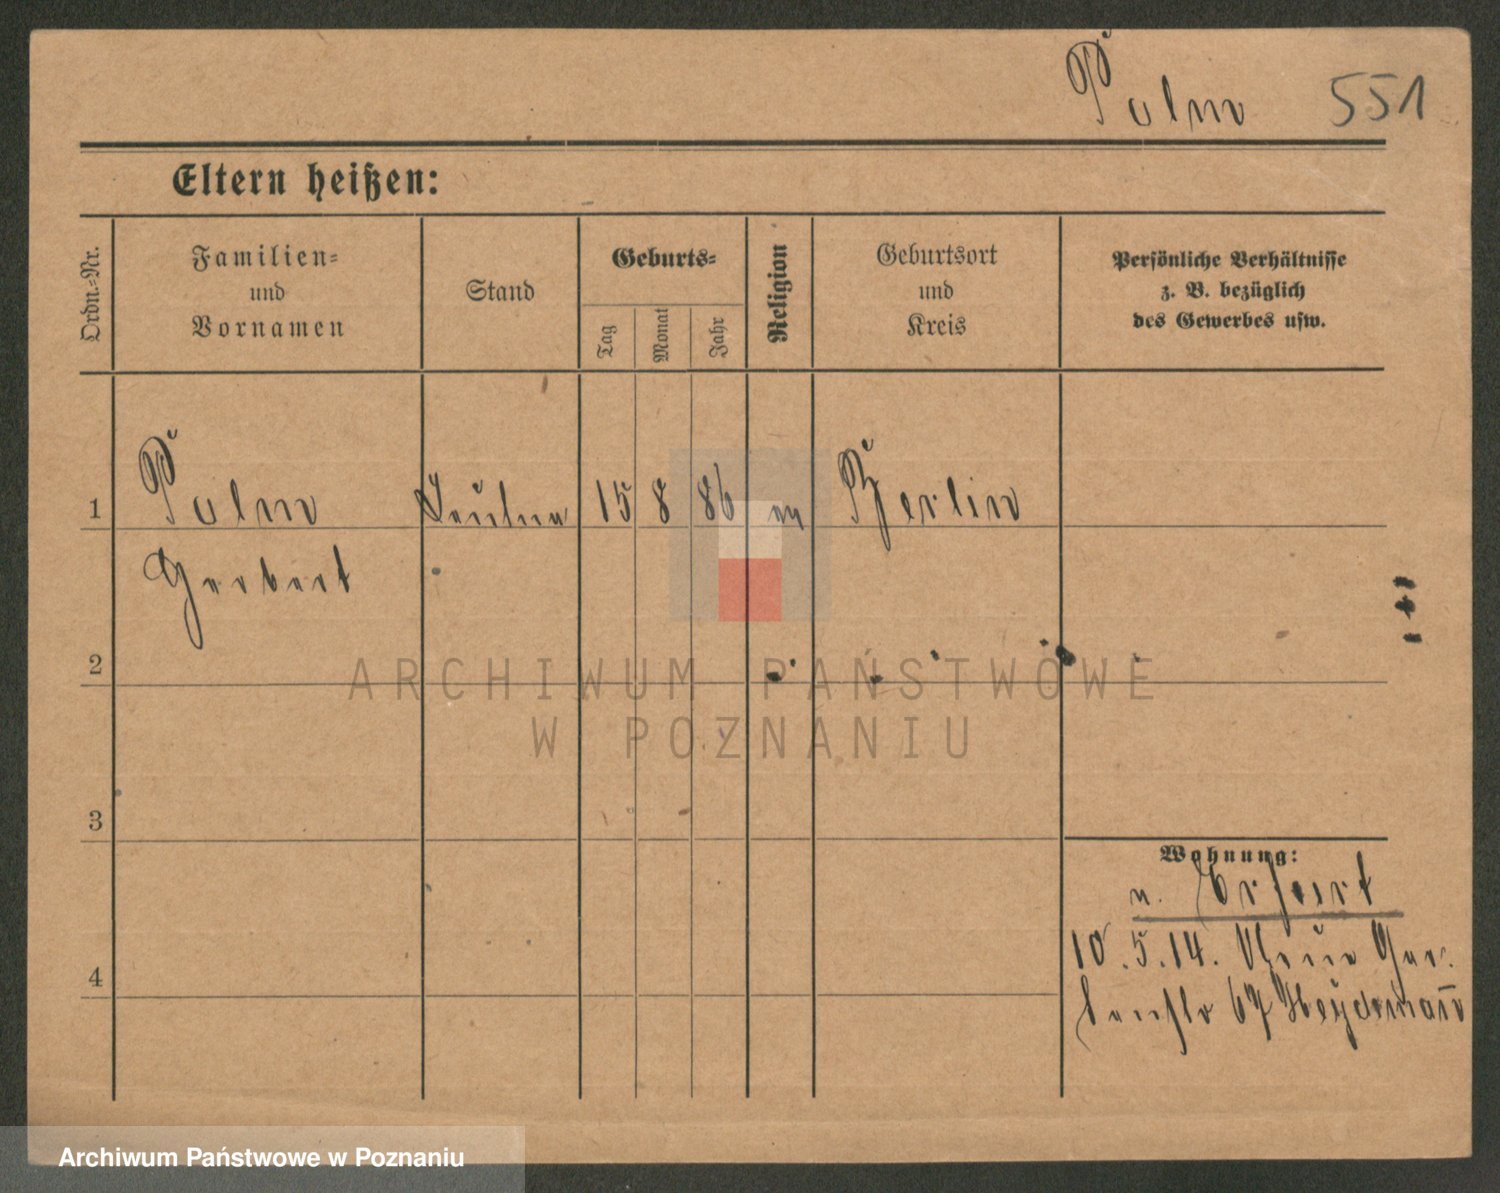 Palm 551
Eltern heißen:
Ordn.-Nr.
Familien-
und
Vornamen
Stand
Geburts-
Tag
Monat
Jahr
Religion
Geburtsort
und
Kreis
Persönliche Verhältnisse
z. B. bezüglich
des Gewerbes usw.
1 Palm 15 8 86 Berlin
Herbert
2
ARCHIWUM PAŃSTWOWE
W POZNANIU
3
Wohnung:
n. Erfurt
4
10.5.14. Neue Gar-
tenstr 67 Heydemann
Archiwum Państwowe w Poznaniu